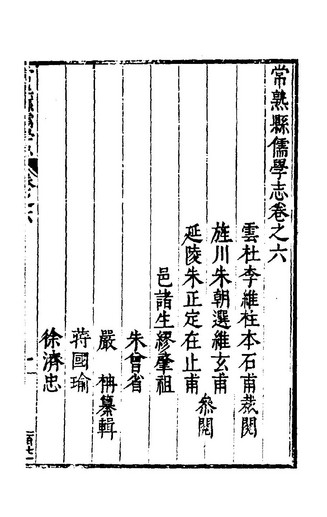 常熟縣儒學志卷之六
雲杜李維柱本石甫裁閱
旌川朱朝選維玄甫
延陵朱正定在止甫
參閱
邑諸生繆肇祖
朱曾省
嚴柟纂輯
蔣國瑜
徐濟忠